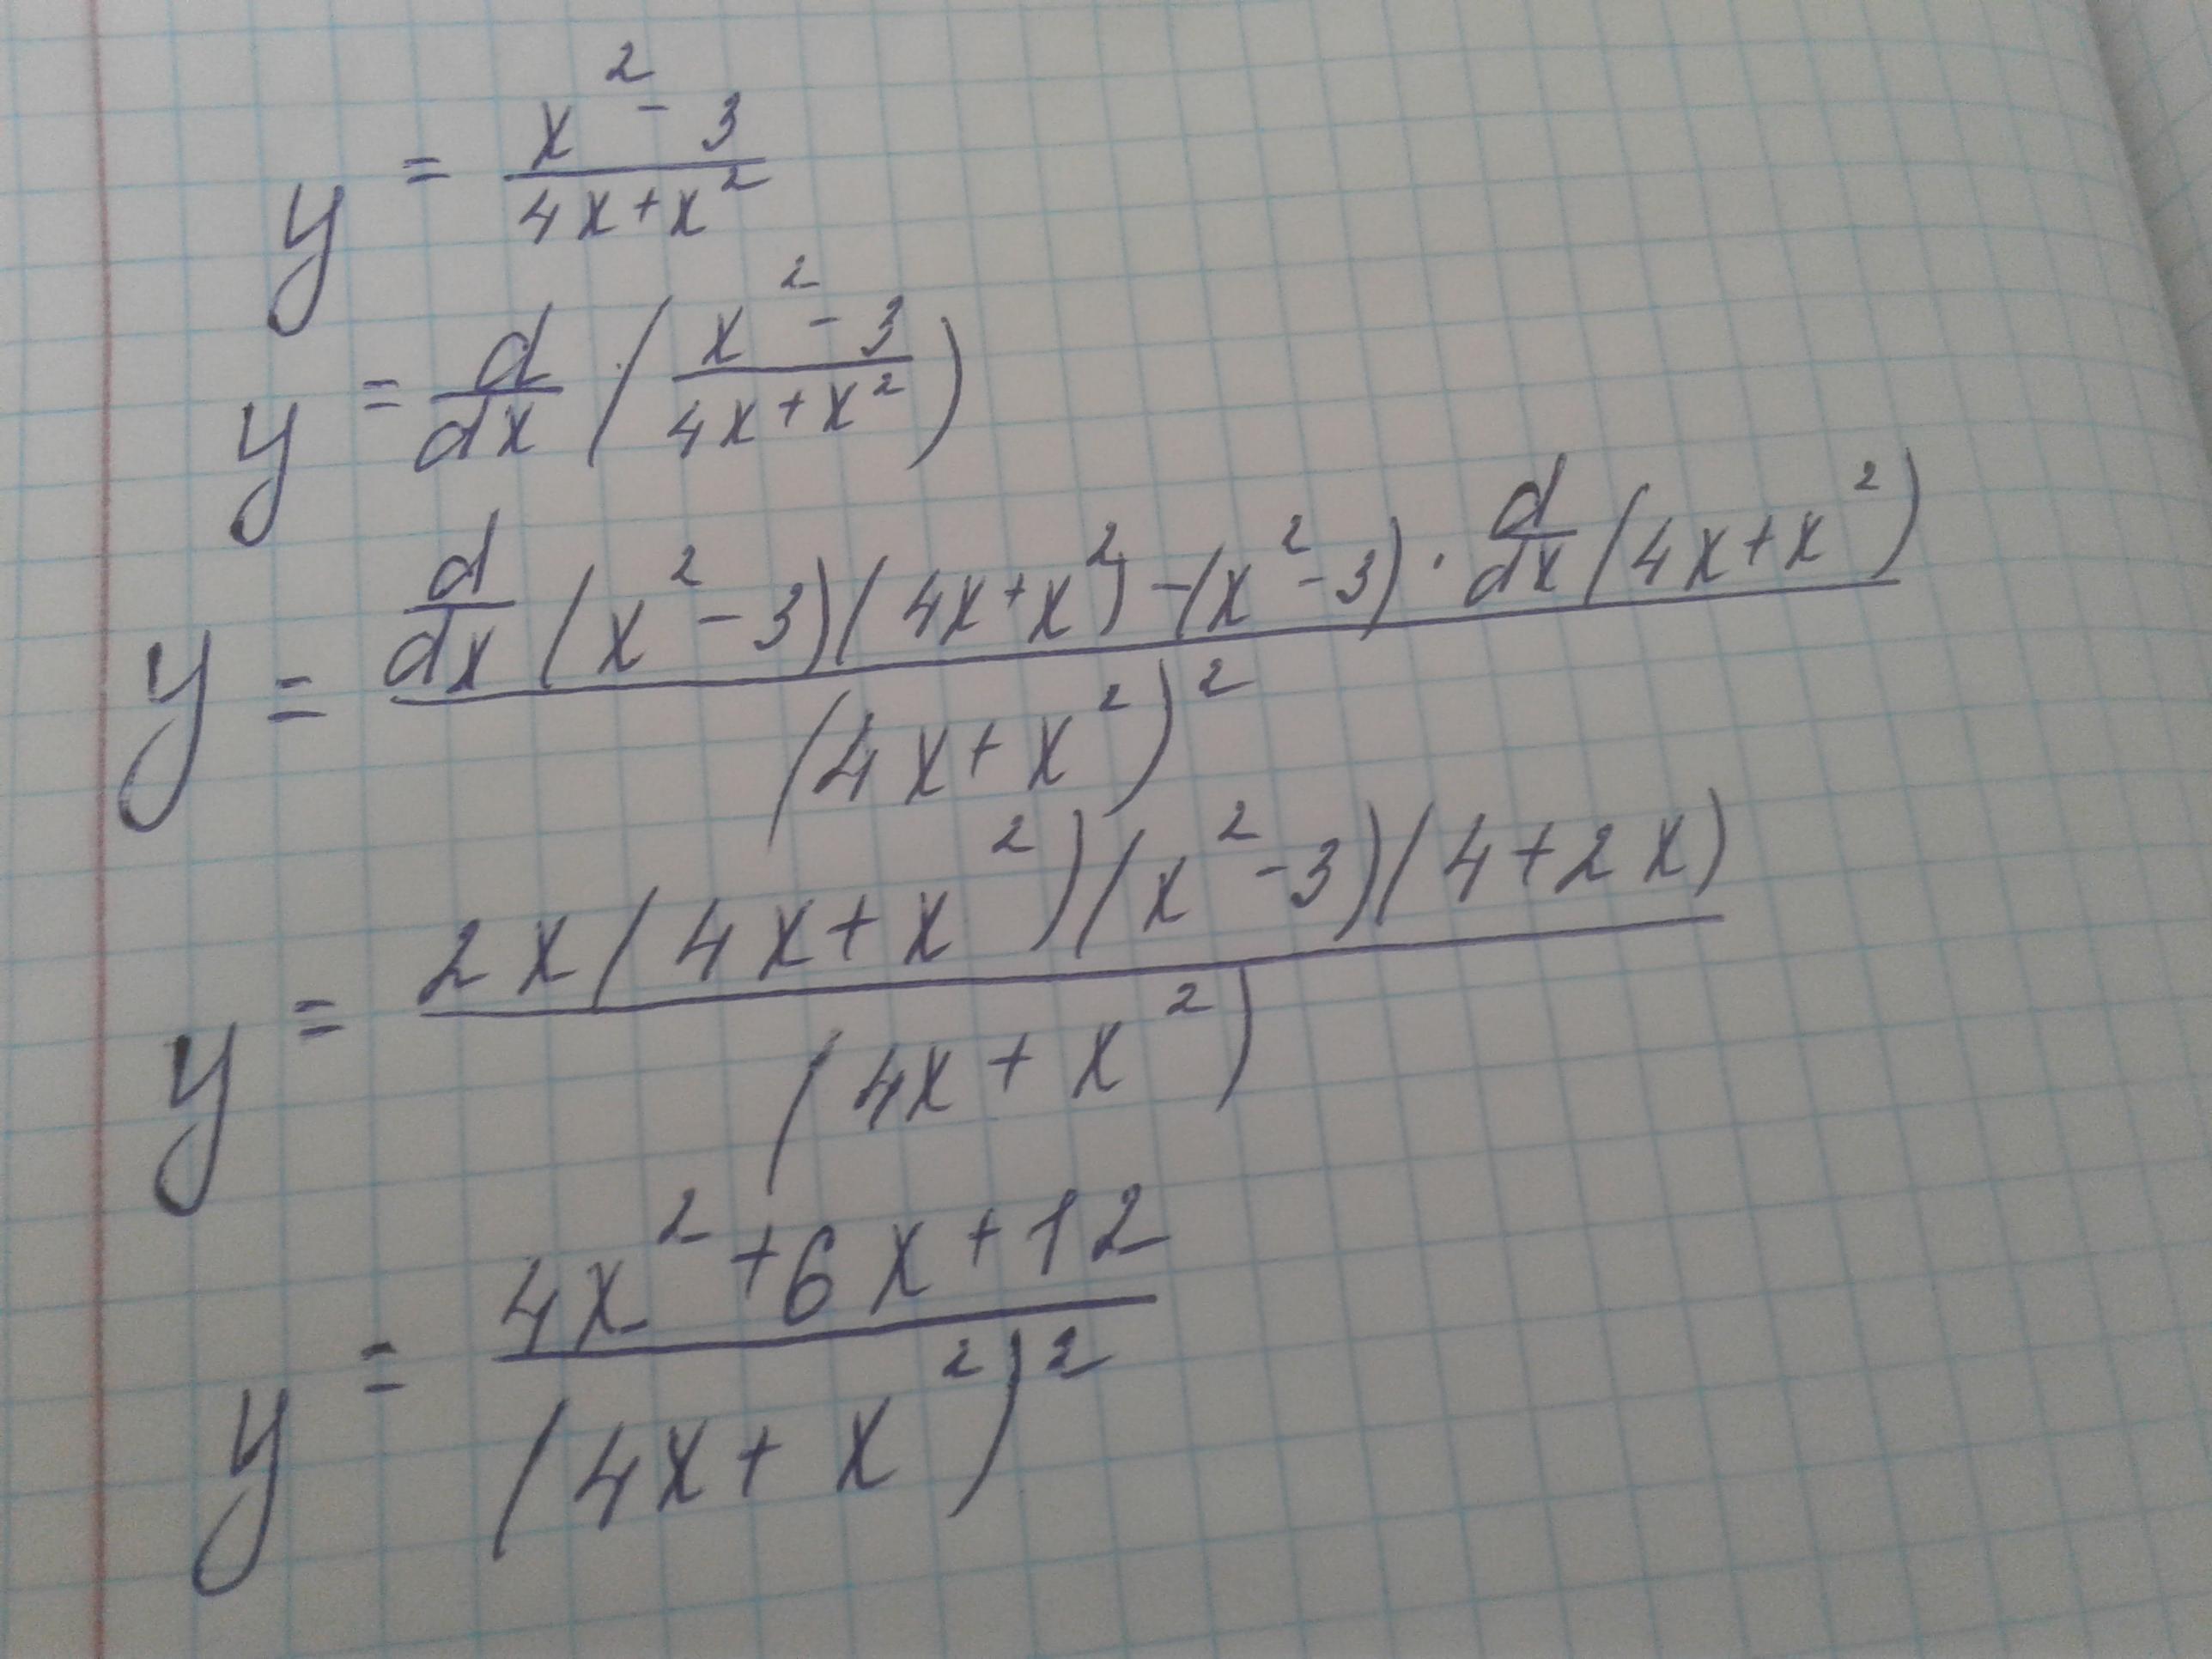 y = \frac{x^2 - 3}{4x + x^2}
y = \frac{d}{dx} \left( \frac{x^2 - 3}{4x + x^2} \right)
y = \frac{\frac{d}{dx} (x^2 - 3)(4x + x^2) - (x^2 - 3) \cdot \frac{d}{dx} (4x + x^2)}{(4x + x^2)^2}
y = \frac{2x(4x + x^2)(x^2 - 3)(4 + 2x)}{(4x + x^2)}
y = \frac{4x^2 + 6x + 12}{(4x + x^2)^2}